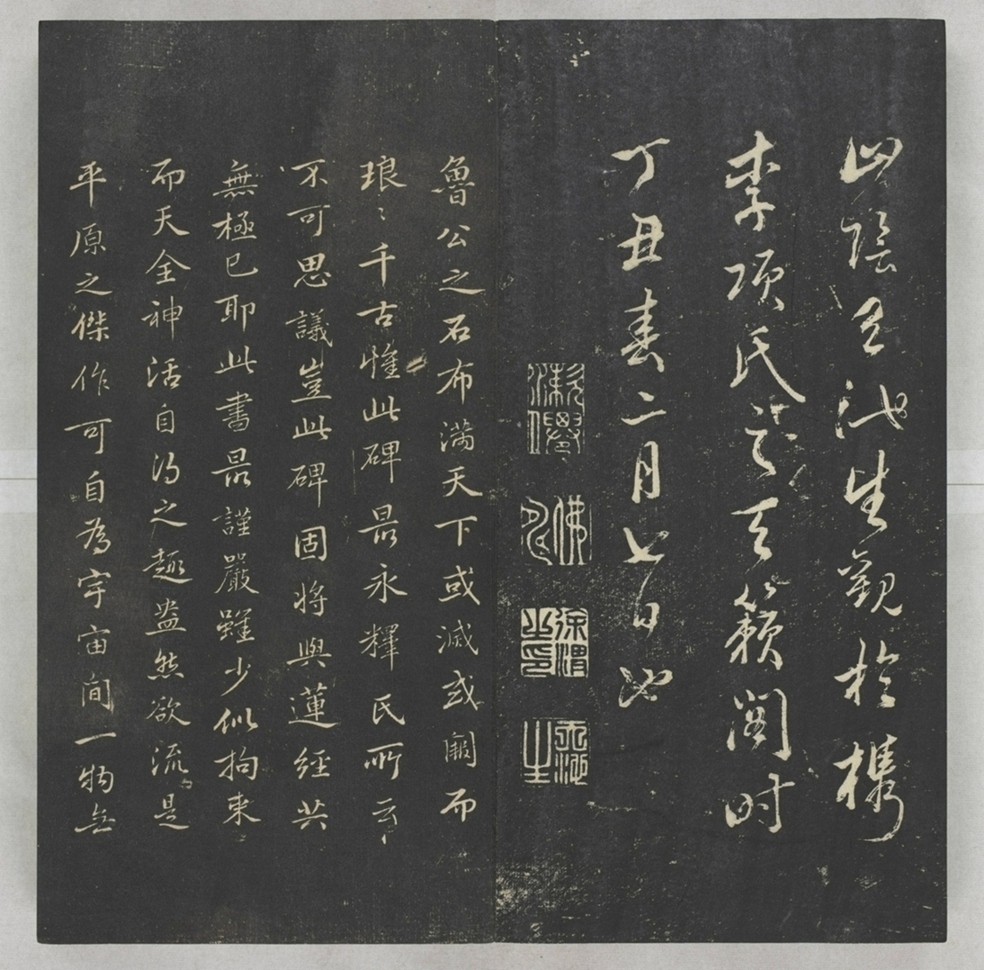 山陰天池生觀於檇
李項氏之天籟閣时
丁丑春二月七日也
佛
徐渭之印
天池山
魯公之石布满天下或滅或闕而
琅〻千古惟此碑最永釋氏所云
不可思議豈此碑固将與蓮經共
無極已耶此書最謹嚴雖少似拘束
而天全神活自得之趣盎然欲流是
平原之傑作可自為宇宙间一物无